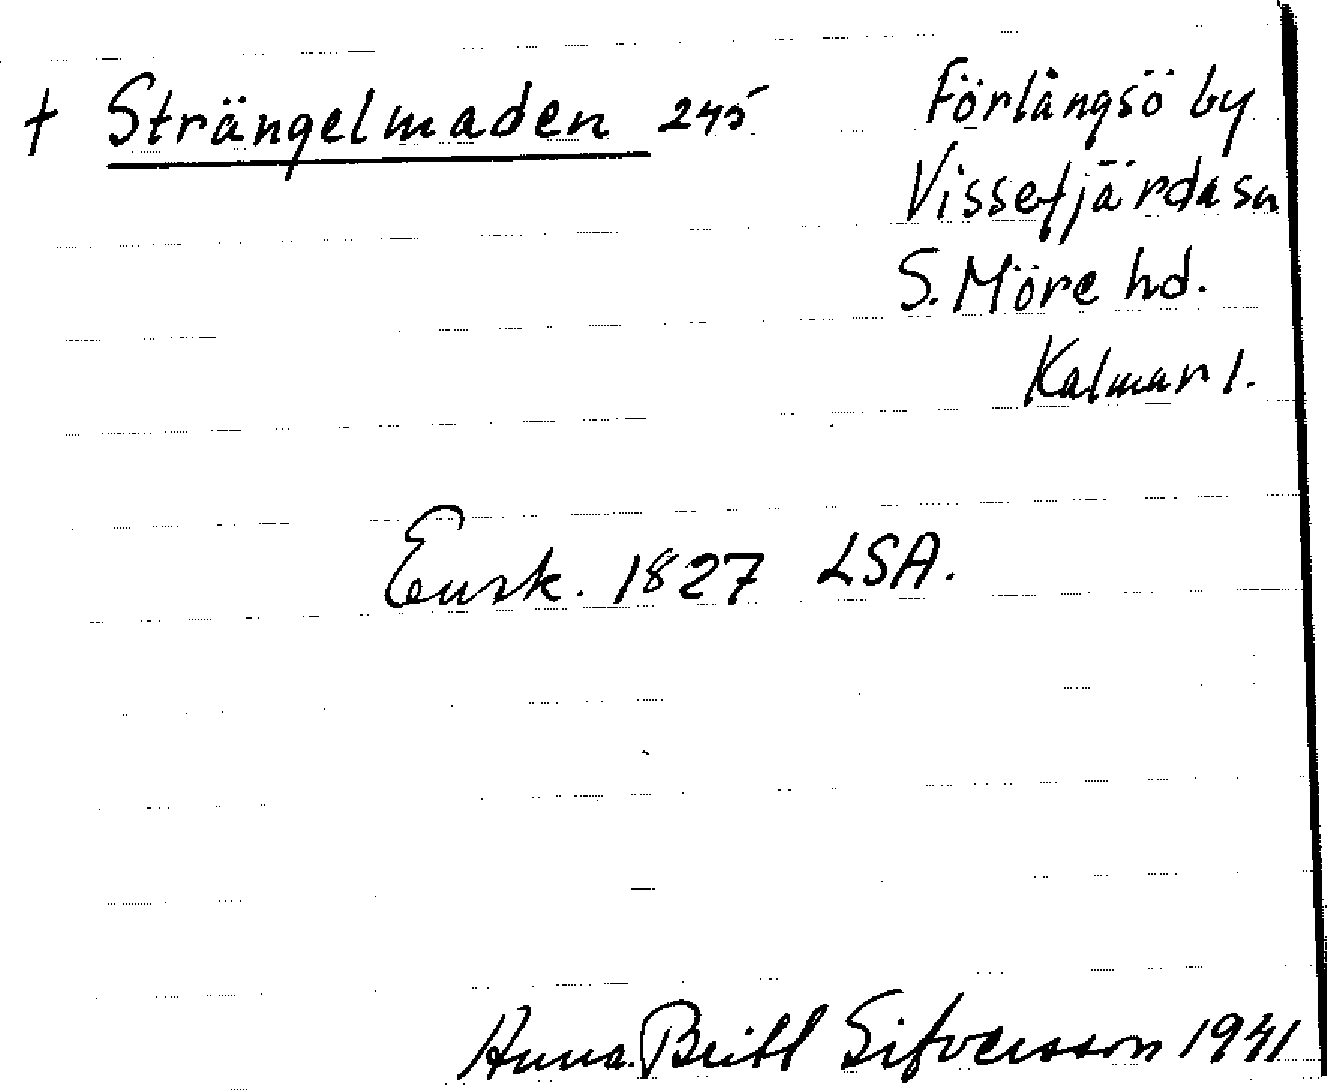 † Strängelmaden 245
Förlångsö by
Vissefjärda sn
S. Möre hd.
Kalmar l.
Ensk. 1827 LSA.
Anna Britt Sifversson 1941